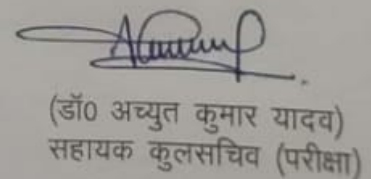 (डॉ0 अच्युत कुमार यादव)
सहायक कुलसचिव (परीक्षा)